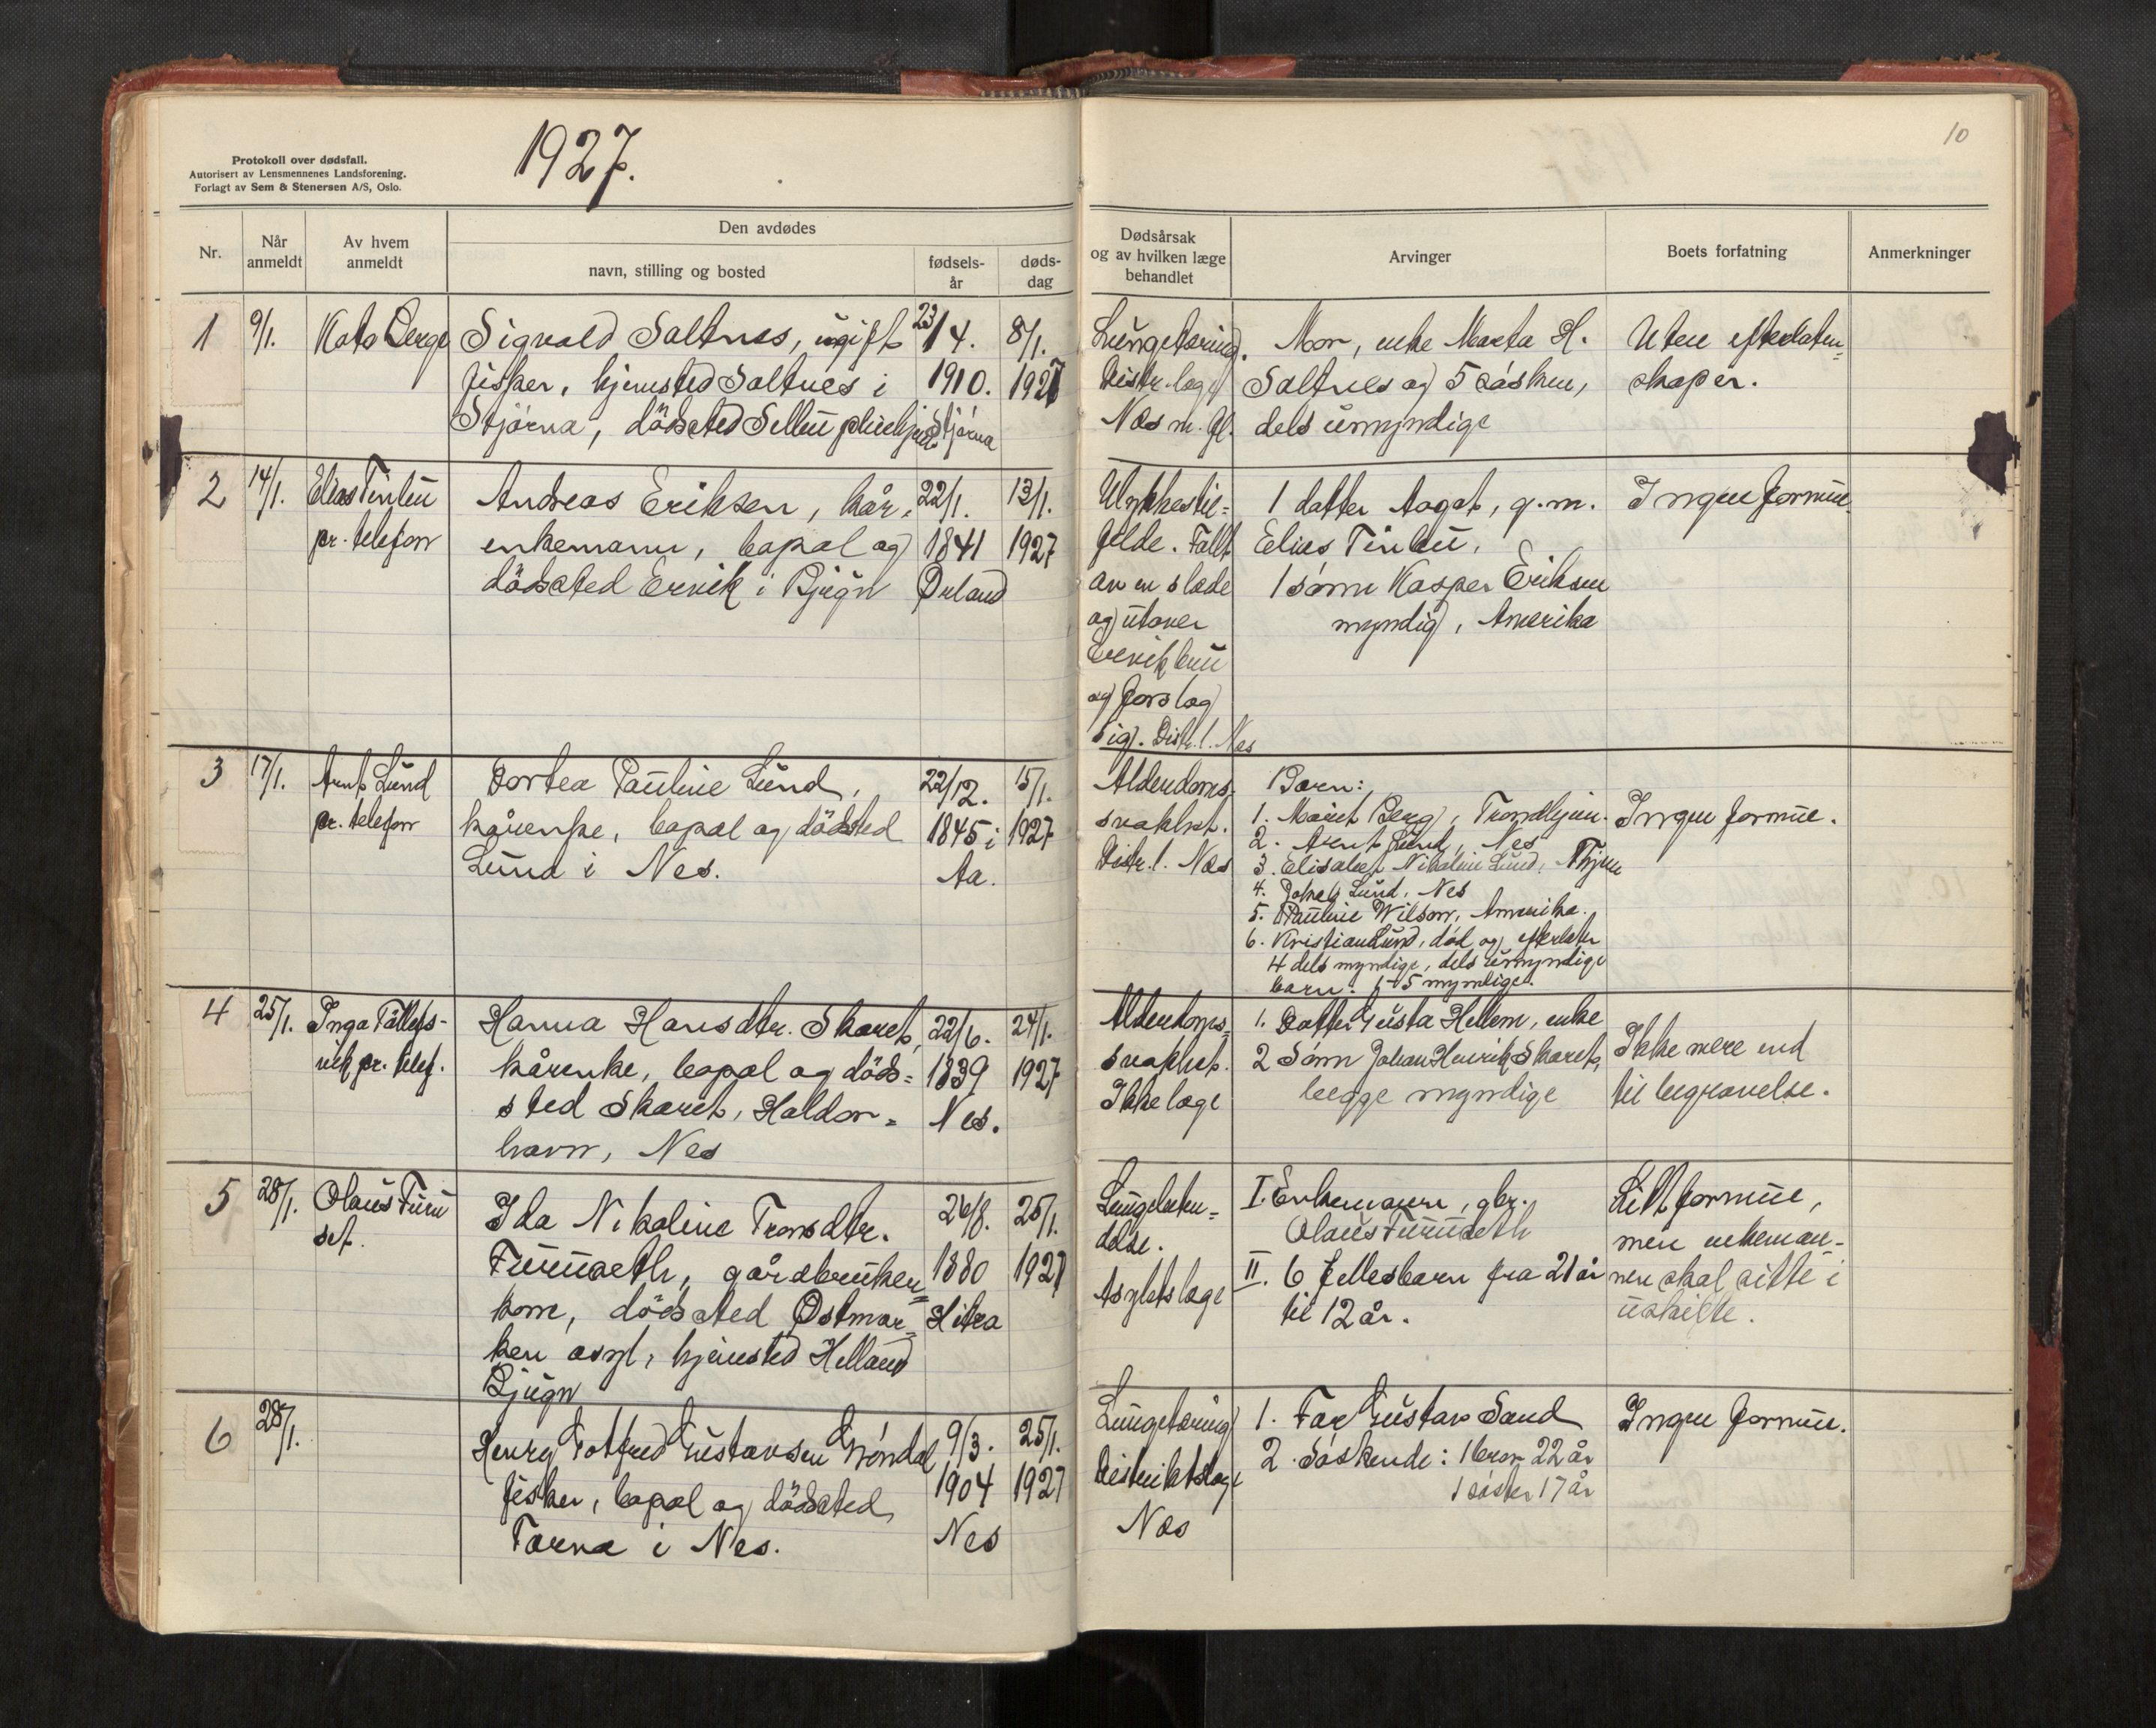 Protokoll over dødsfall.
Autorisert av Lensmennenes Landsforening.
Forlagt av Sem & Stenersen A/S, Oslo.
1927.
10
Nr.
Når anmeldt
Av hvem anmeldt
Den avdødes
navn, stilling og bosted
fødsels-
år
døds-
dag
Dødsårsak
og av hvilken læge
behandlet
Arvinger
Boets forfatning
Anmerkninger
1
9/1.
Sigvald Saltnes, ugift
fisker, hjemsted Saltnes i
Stjørna, dödsted Selbu pleiehjem
23/4.
1910.
Stjørna
8/1.
1927
Lungetæring.
Distr.læge
Næs m. fl.
Mor, enke Marta H.
Saltnes og 5 søsken,
dels umyndige
Uten efterlaten=
skaper.
2
14/1.
Elias Tinbu
pr. telefon
Andreas Eriksen, kår-
enkemann, bopæl og
dödssted Ervik i Bjugn
22/1.
1841
Ørland
13/1.
1927
Ulykkestil=
felde. Falt
av en slæde
og utover
Ervikbru
og forslog
sig. Distr.l. Næs
1 datter Aagot, g.m.
Elias Tinbu.
1 sønn Kasper Eriksen
myndig, Amerika
Ingen formue.
3
17/1.
Arnt Lund
pr. telefon
Dortea Pauline Lund,
kårenke, bopæl og dödsted
Lund i Nes.
22/12.
1845 i
Aa.
15/1.
1927
Alderdoms-
svakhet.
Distr.l. Næs
Barn:
1. Marit Berg, Trondhjem.
2. Arnt Lund, Nes
3. Elisabet Nikoline Lund, Thjem
4. Lund, Nes
5. Pauline Wilson, Amerika.
6. Kristian Lund, død og efterlater
4 dels myndige, dels umyndige
barn. 1-5 myndige.
Ingen formue.
4
25/1.
Inga
vik pr. telef.
Hanna Hansdtr. Skaret,
kårenke, bopæl og döds=
sted Skaret, Haldor=
havn, Nes
22/6.
1839
Nes.
24/1.
1927
Alderdoms=
svakhet.
Ikke læge
1. Datter Gusta Hellem, enke
2 Sønn Johan Henrik Skaret,
begge myndige
Ikke mere end
til begravelse.
5
28/1.
Olaus Furu
set.
Ida Nikoline Tronsdtr.
Furuseth, gårdbruker=
kone, dödssted Østmar=
ken asyl, hjemsted Helland
Bjugn
26/8.
1880
Hitra
25/1.
1927
Lungebeten=
delse.
Asylets læge
I. Enkemann, gbr.
Olaus Furuseth
II. 6 fellesbarn fra 21 år
til 12 år.
Litt formue,
men enkeman-
nen skal sitte i
uskifte.
6
28/1.
Henry Gotfred Gustavsen Grøndal
fisker, bopæl og dödssted
Tarva i Nes.
9/3.
1904
Nes
25/1.
1927
Lungetæring
Distriktslæge
Næs
1. Far Gustav Sand
2. Søskende: 1 bror 22 år
1 søster 17 år
Ingen formue.